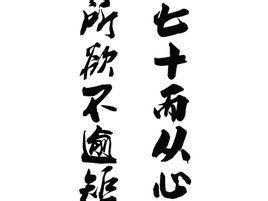 七十而从心
所欲不逾矩